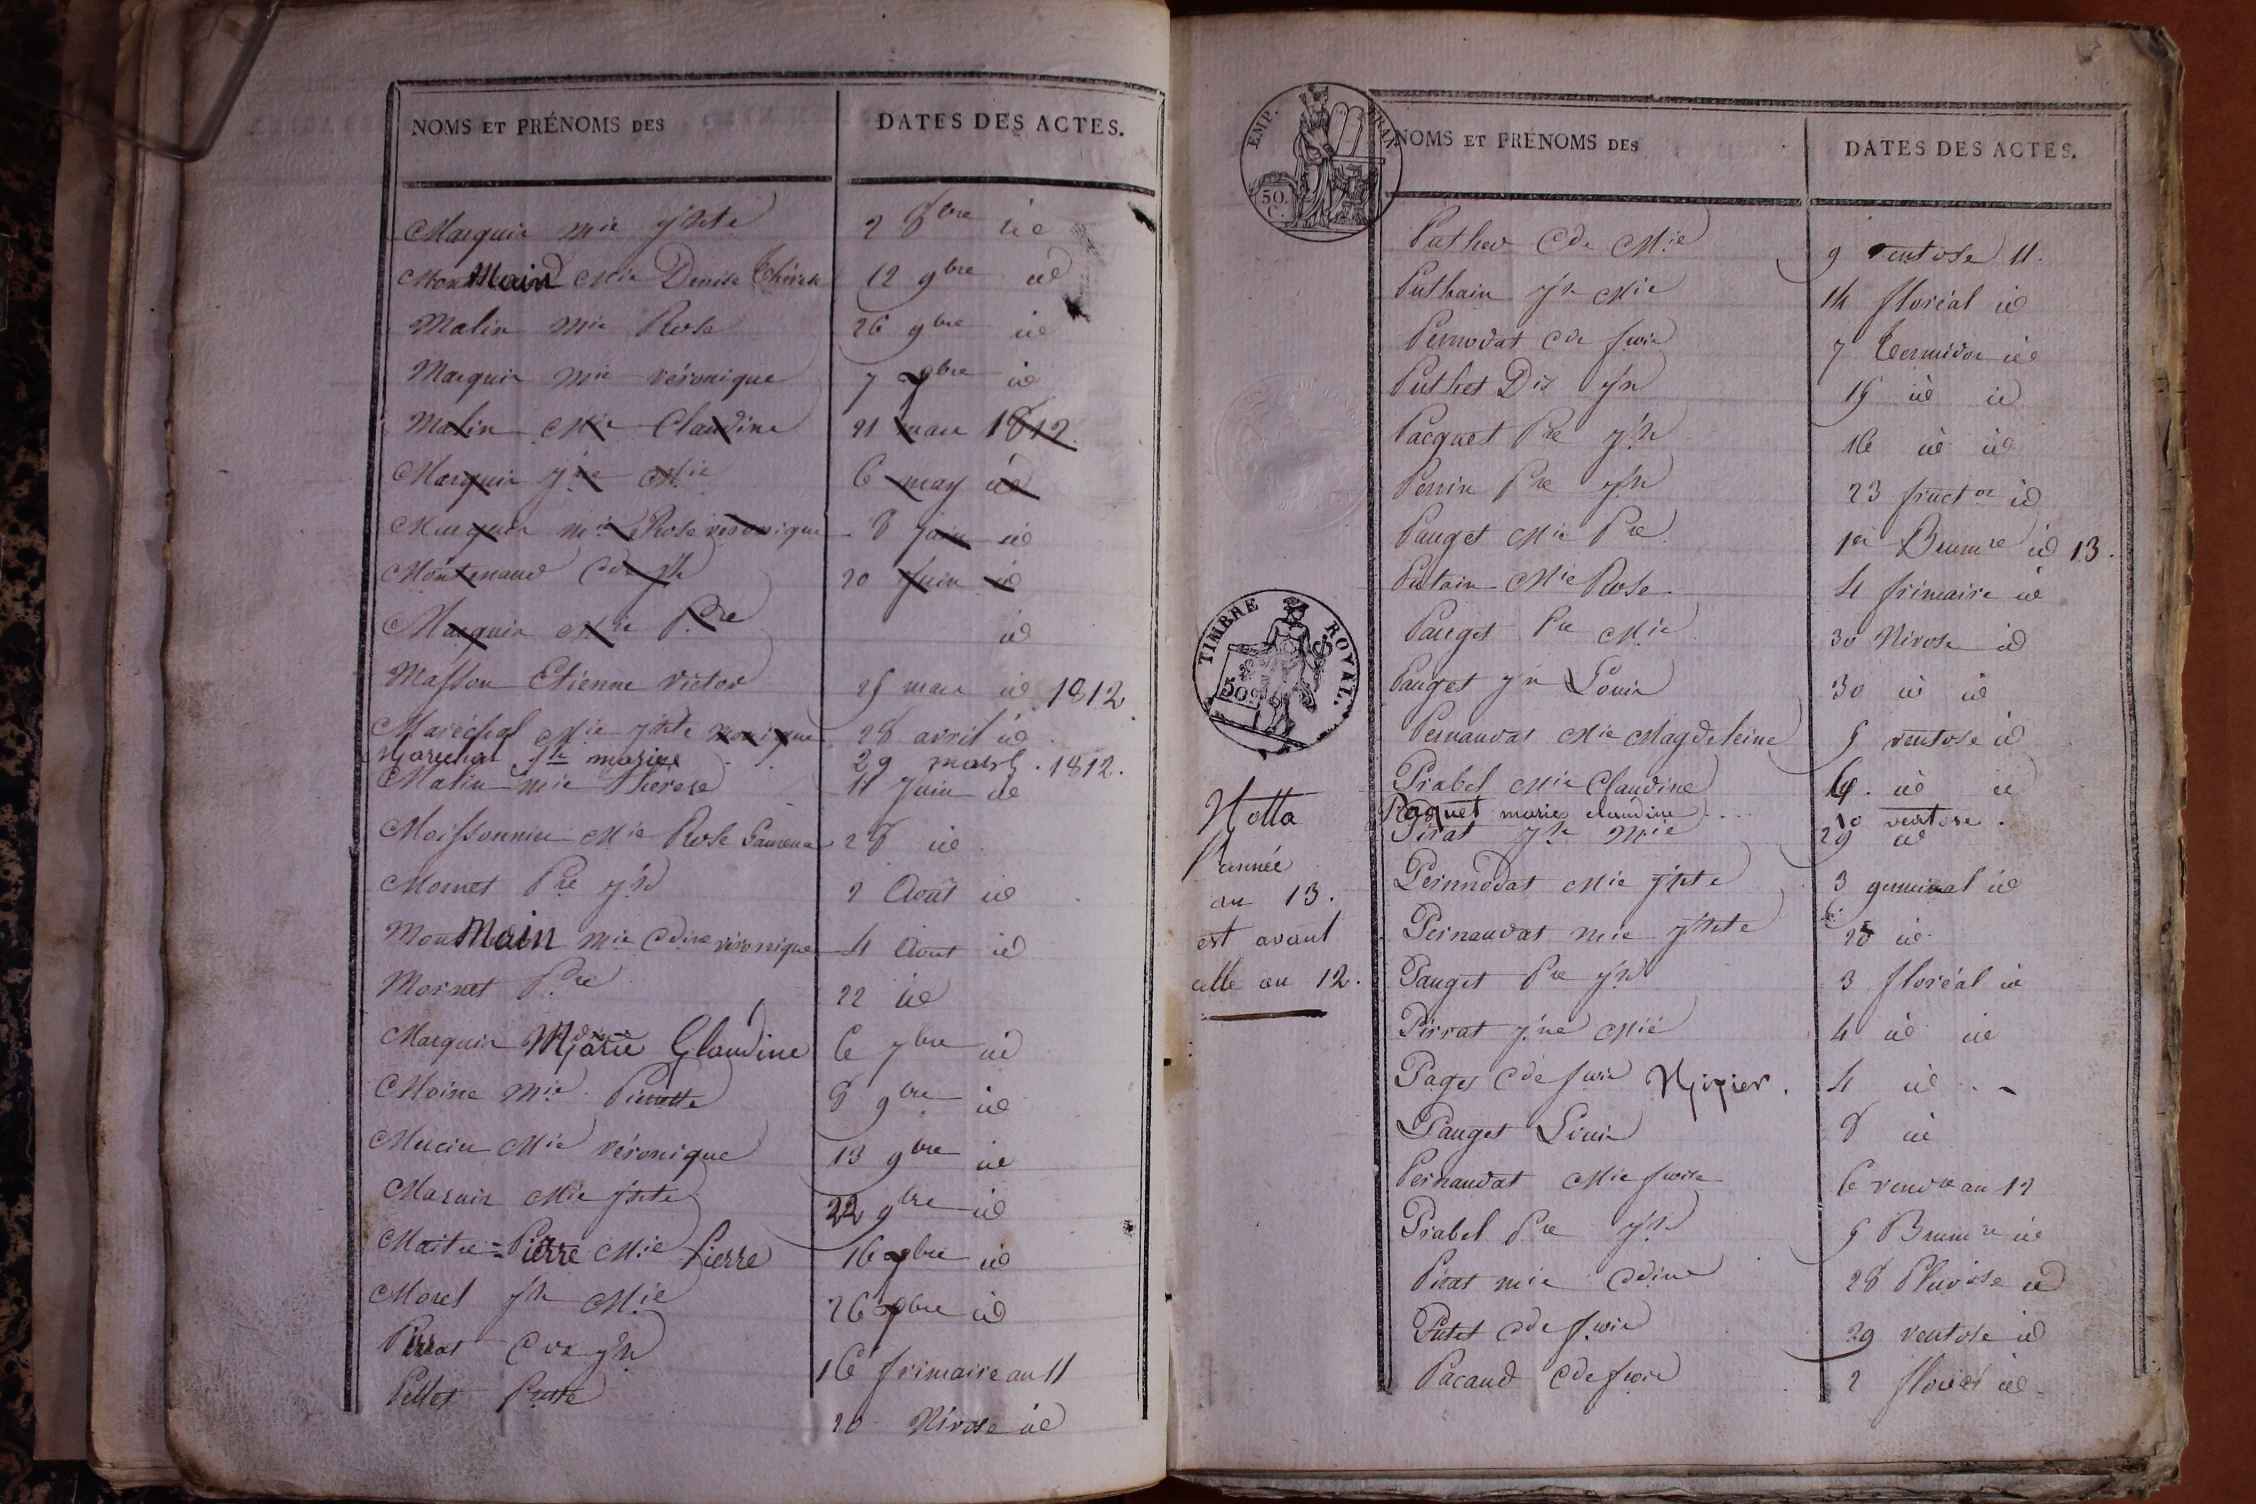 NOMS ET PRÉNOMS DES DATES DES ACTES.
Marquis mie jhte 2 8bre id
MonMain Mie Denise Thérèse 12 9bre id
Malin mie Rose 26 9bre id
Marquis mie véronique 7 9bre id
Malin Mie Claudine 21 mars 1812
Marquis Mie 6 may id
Marquis mie Rose véronique 8 juin id
Montenaud Cde jh 20 juin id
Marquis Mie Pre id
Masson Etienne victor 25 mars id 1812
Maréchal Mie jhte monique 28 avril id
Marechal marie 29 mars 1812.
Malin mie Thérèse 11 Juin id
Moissonnier Mie Rose 28 id
Mornet Pre jh 2 Août id
MonMain mie Cdine véronique 4 Aout id
Mornet Pre 22 id
Marquis Marie Claudine 6 7bre id
Moine Mie Pierrette 8 9bre id
Mucin Mie véronique 13 9bre id
Mie jhte 22 9bre id
Maitre=Pierre Mie Pierre 16 id
Morel jh Mie 26 id
Pirrat Cde jh 16 frimaire an 11
Pellet Prette 20 Nivose id
EMP. FRAN
50. C.
NOMS ET PRÉNOMS DES DATES DES ACTES.
Cde Mie 9 ventose 11.
Puthain jh Mie 14 floréal id
Pernodat Cde fcois 7 Termidor id
Puthet Dis jh 15 id id
Pacquet Pre jh 16 id id
Perrin Pre jh 23 fructor id
Pauget Mie Pre 1er Brumre id 13.
Putain Mie Rose 4 frimaire id
Pauget Pre Mie 30 Nivose id
Pauget jh Louis 30 id id
TIMBRE ROYAL.
50c
Pernaudat Mie Magdeleine 5 ventose id
Prabel Mie Claudine id id
Paquet marie claudine 10 ventose.
Pirat jh Mie 29 id
Pernnodat Mie jhte 3 germinal id
Pernaudat mie jhte 28 id
Pauget Pre jh 3 floréal id
Pirrat Mie 4 id id
Pages Cde fcois 4 id
Pauget Louis 8 id
Pernaudat Mie fcoise 6 vendre an 12
Prabel Pre jh 5 Brumre id
Pirat mie Cdine 28 Pluviose id
Putet Cde fcois 29 ventose id
Pacaud Cde fcois 2 floréal id
Notta
l'année
an 13.
est avant
celle an 12.